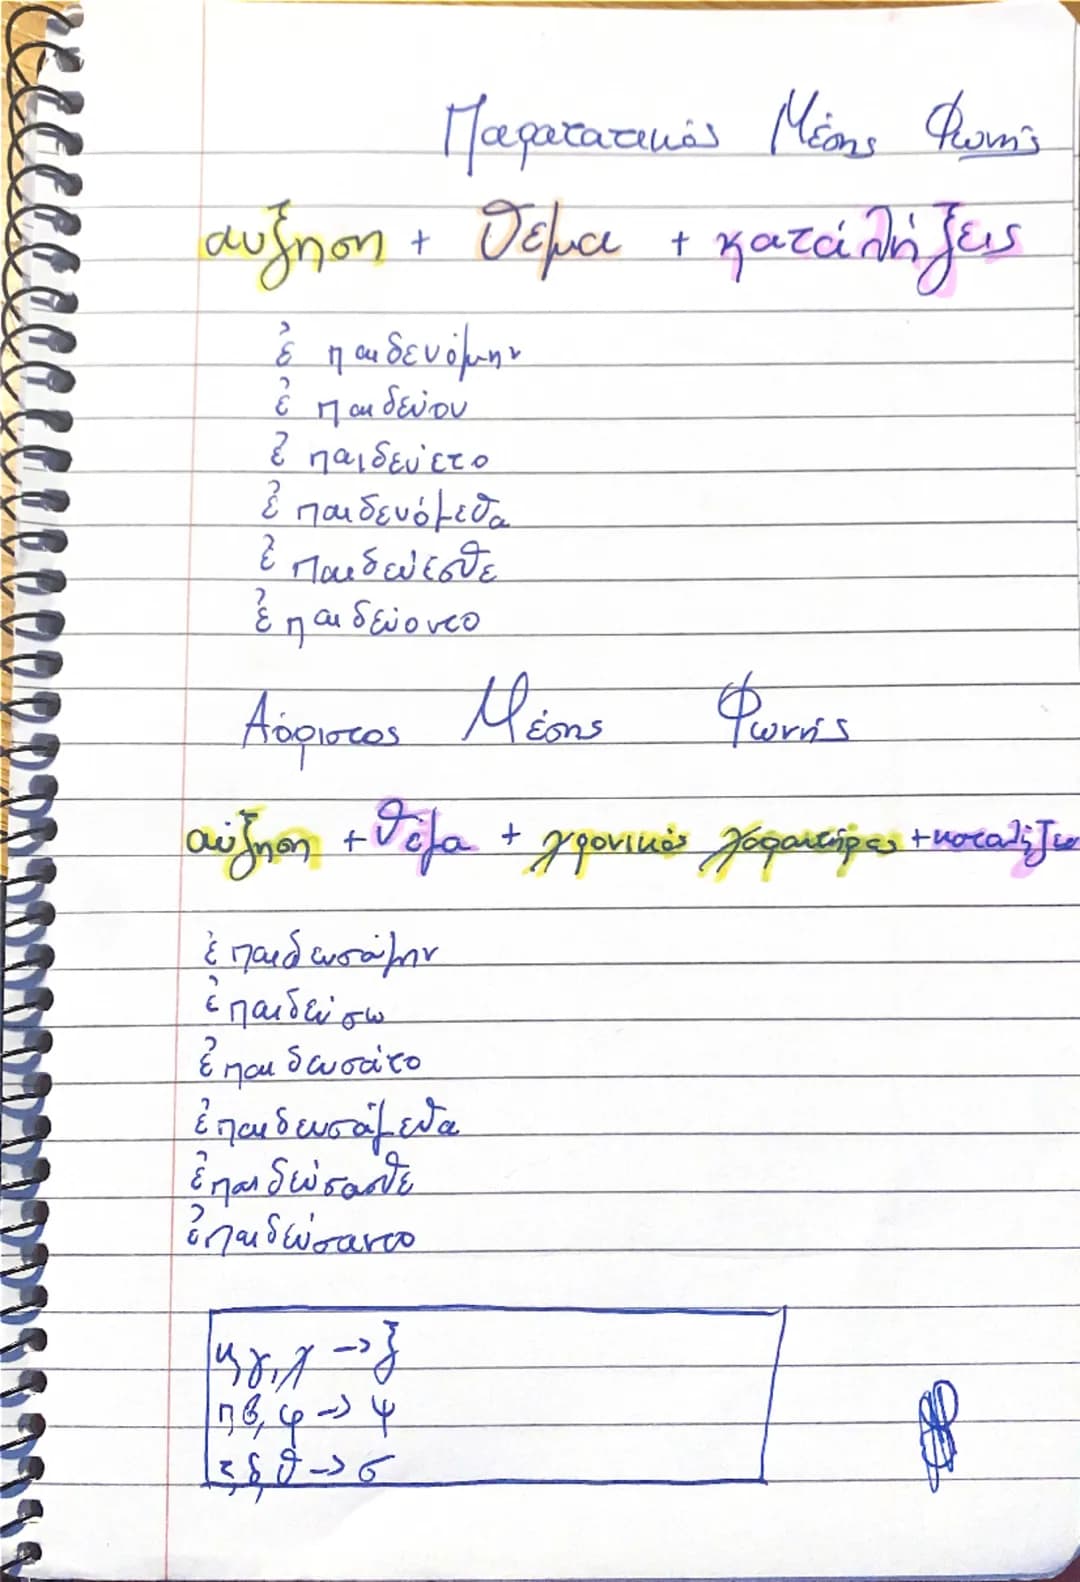 Παρατατικός Μέσης Φωνής
αυξηση + Θέμα + καταλήξεις
ἐ παιδευόμην
ἐ παιδεύου
ἐ παιδεύετο
ἐ παιδευόμεθα
ἐ παιδεύεσθε
ἐ παιδεύοντο
Αόριστος Μέσης Φωνής
αύξηση + θέμα + χρονικός χαρακτήρας + καταλήξεις
ἐ παιδευσάμην
ἐ παιδεύσω
ἐ παιδευσάτο
ἐ παιδευσάμεθα
ἐ παιδεύσασθε
ἐ παιδεύσαντο
κ, γ, χ -> ξ
π, β, φ -> ψ
τ, δ, θ -> σ